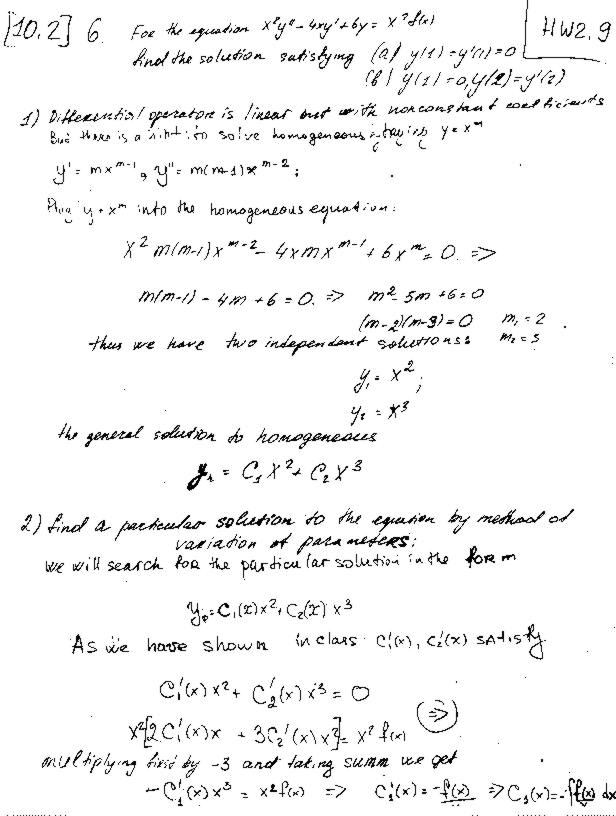 [10.2] 6. For the equation x²y" - 4xy' + 6y = x²f(x)
HW2, 9
find the solution satisfying (a) y(1) = y'(1) = 0
(b) y(1) = 0, y(2) = y'(2)
1) Differential operator is linear but with nonconstant coefficients
But there is a hint: to solve homogeneous, try y = x^m
y' = mx^{m-1}, y" = m(m-1)x^{m-2};
Plug y = x^m into the homogeneous equation:
x² m(m-1)x^{m-2} - 4xmx^{m-1} + 6x^m = 0. =>
m(m-1) - 4m + 6 = 0. => m² - 5m + 6 = 0
(m-2)(m-3) = 0 m₁ = 2
thus we have two independent solutions: m₂ = 3
y₁ = x²;
y₂ = x³
the general solution to homogeneous
y = C₁x² + C₂x³
2) find a particular solution to the equation by method of
variation of parameters:
we will search for the particular solution in the form
y = C₁(x)x² + C₂(x)x³
As we have shown in class C₁'(x), C₂'(x) satisfy
C₁'(x)x² + C₂'(x)x³ = 0
x²[2C₁'(x)x + 3C₂'(x)x²] = x²f(x) (=>)
multiplying first by -3 and taking summ we get
-C₁'(x)x³ = x²f(x) => C₁'(x) = -f(x) => C₁(x) = -∫f(x) dx